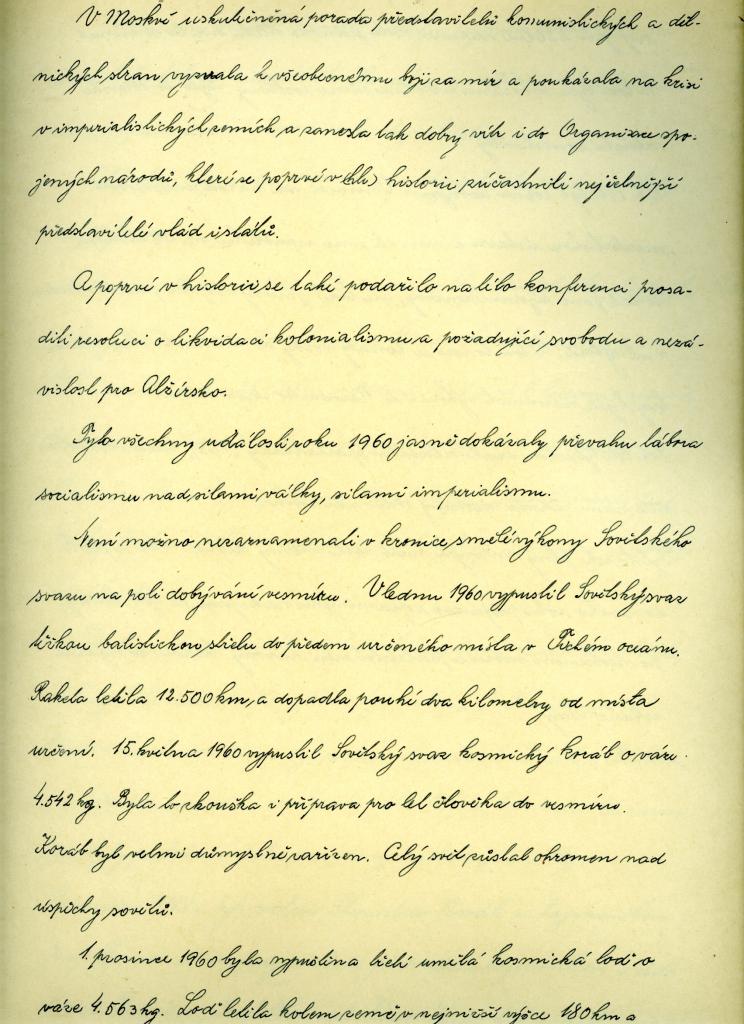 V Moskvě uskutečněná porada představitelů komunistických a děl-
nických stran vyzvala k všeobecnému boji za mír a poukázala na krisi
v imperialistických zemích a zanesla tak dobrý vítr i do Organisace spo-
jených národů, které se poprvé v (hle) historii zúčastnili nejčelnější
představitelé vlád i států.
A poprvé v historii se také podařilo na této konferenci prosa-
diti resoluci o likvidaci kolonialismu a požadující svobodu a nezá-
vislost pro Alžírsko.
Tyto všechny události roku 1960 jasně dokázaly převahu tábora
socialismu nad silami války, silami imperialismu.
Není možno nezaznamenati v kronice smělé výkony Sovětského
svazu na poli dobývání vesmíru. V lednu 1960 vypustil Sovětský svaz
těžkou balistickou střelu do předem určeného místa v Tichém oceánu.
Raketa letěla 12.500 km, a dopadla pouhé dva kilometry od místa
určení. 15. května 1960 vypustil Sovětský svaz kosmický koráb o váze
4.542 kg. Byla to zkouška i příprava pro let člověka do vesmíru.
Koráb byl velmi důmyslně zařízen. Celý svět zůstal ohromen nad
úspěchy sovětů.
1. prosince 1960 byla vypuštěna třetí umělá kosmická loď o
váze 4.563 kg. Loď letěla kolem země v nejnižší výšce 180 km a